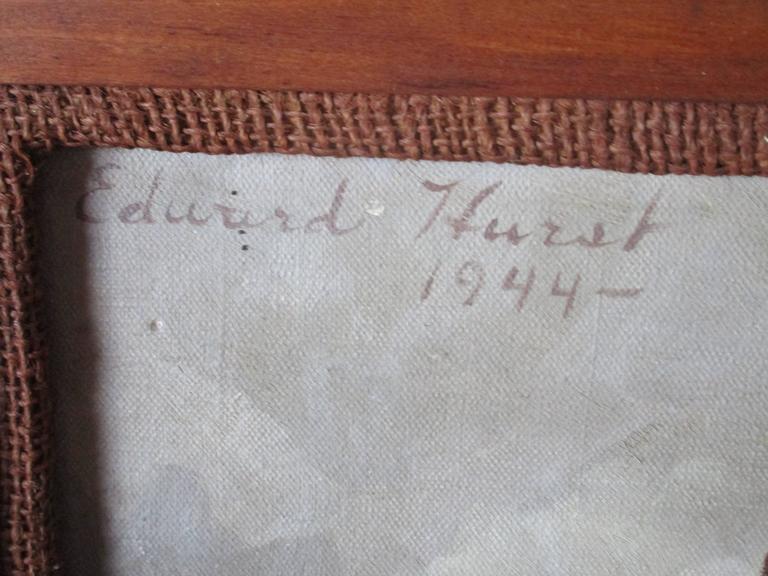 Edward Hurst
1944-